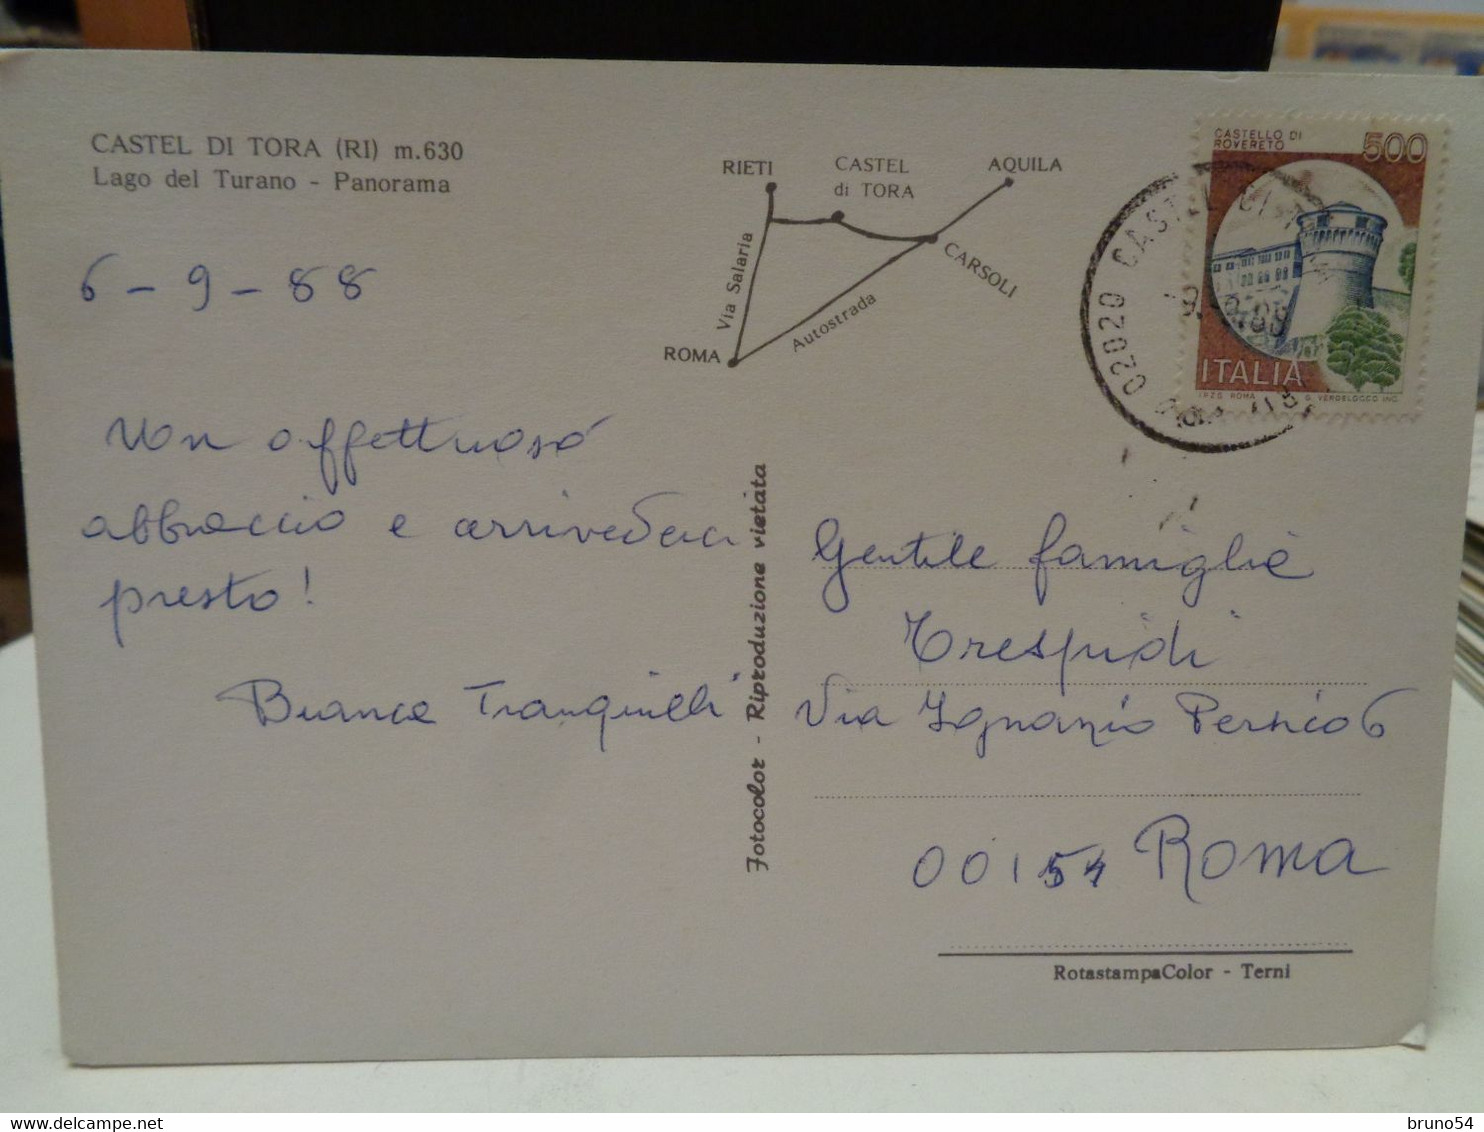 CASTEL DI TORA (RI) m.630
Lago del Turano - Panorama
RIETI
CASTEL
di TORA
AQUILA
CARSOLI
Via Salaria
Autostrada
ROMA
CASTELLO DI
ROVERETO
500
ITALIA
I.P.Z.S. ROMA
G. VERDELOCCO INC.
02020 CASTEL DI
6-9-88
Un affettuoso
abbraccio e arrivederci
presto!
Bianca Tranquilli
Fotocolor - Riproduzione vietata
Gentile famiglia
Trespidi
Via Ignazio Persico 6
00154 Roma
RotastampaColor - Terni
bruno54